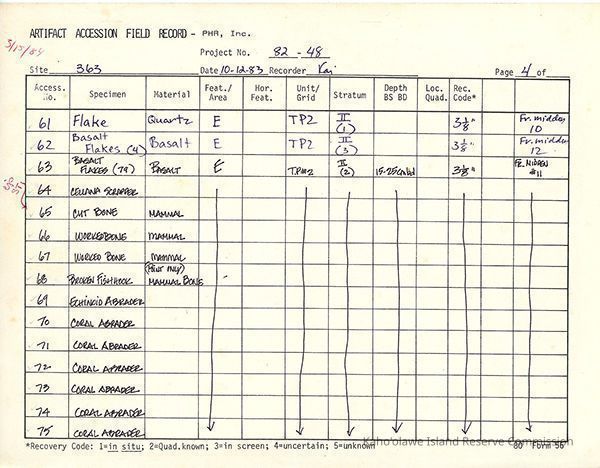 ARTIFACT ACCESSION FIELD RECORD - PHR, Inc.
3/15/84
Project No. 82 - 48
Site 363 Date 10-12-83 Recorder Kai Page 4 of
Access. No. Specimen Material Feat./ Area Hor. Feat. Unit/ Grid Stratum Depth BS BD Loc. Quad. Rec. Code*
61 Flake Quartz E TP2 II (1) 3 1/8" Fr. midden 10
62 Basalt Flakes (4) Basalt E TP2 II (3) 3 1/8" Fr. midden 12
63 BASALT FLAKES (79) BASALT E TP#2 II (2) 15-25cmbd 3 1/8" FR. MIDDEN #11
64 CELLANA SCRAPER
65 CUT BONE MAMMAL
66 WORKED BONE MAMMAL
67 WORKED BONE MAMMAL
68 BROKEN FISHHOOK (POINT ONLY) MAMMAL BONE
69 ECHINOID ABRADER
70 CORAL ABRADER
71 CORAL ABRADER
72 CORAL ABRADER
73 CORAL ABRADER
74 CORAL ABRADER
75 CORAL ABRADER
*Recovery Code: 1=in situ; 2=Quad.known; 3=in screen; 4=uncertain; 5=unknown 80 Form 56
Kaho'olawe Island Reserve Commission